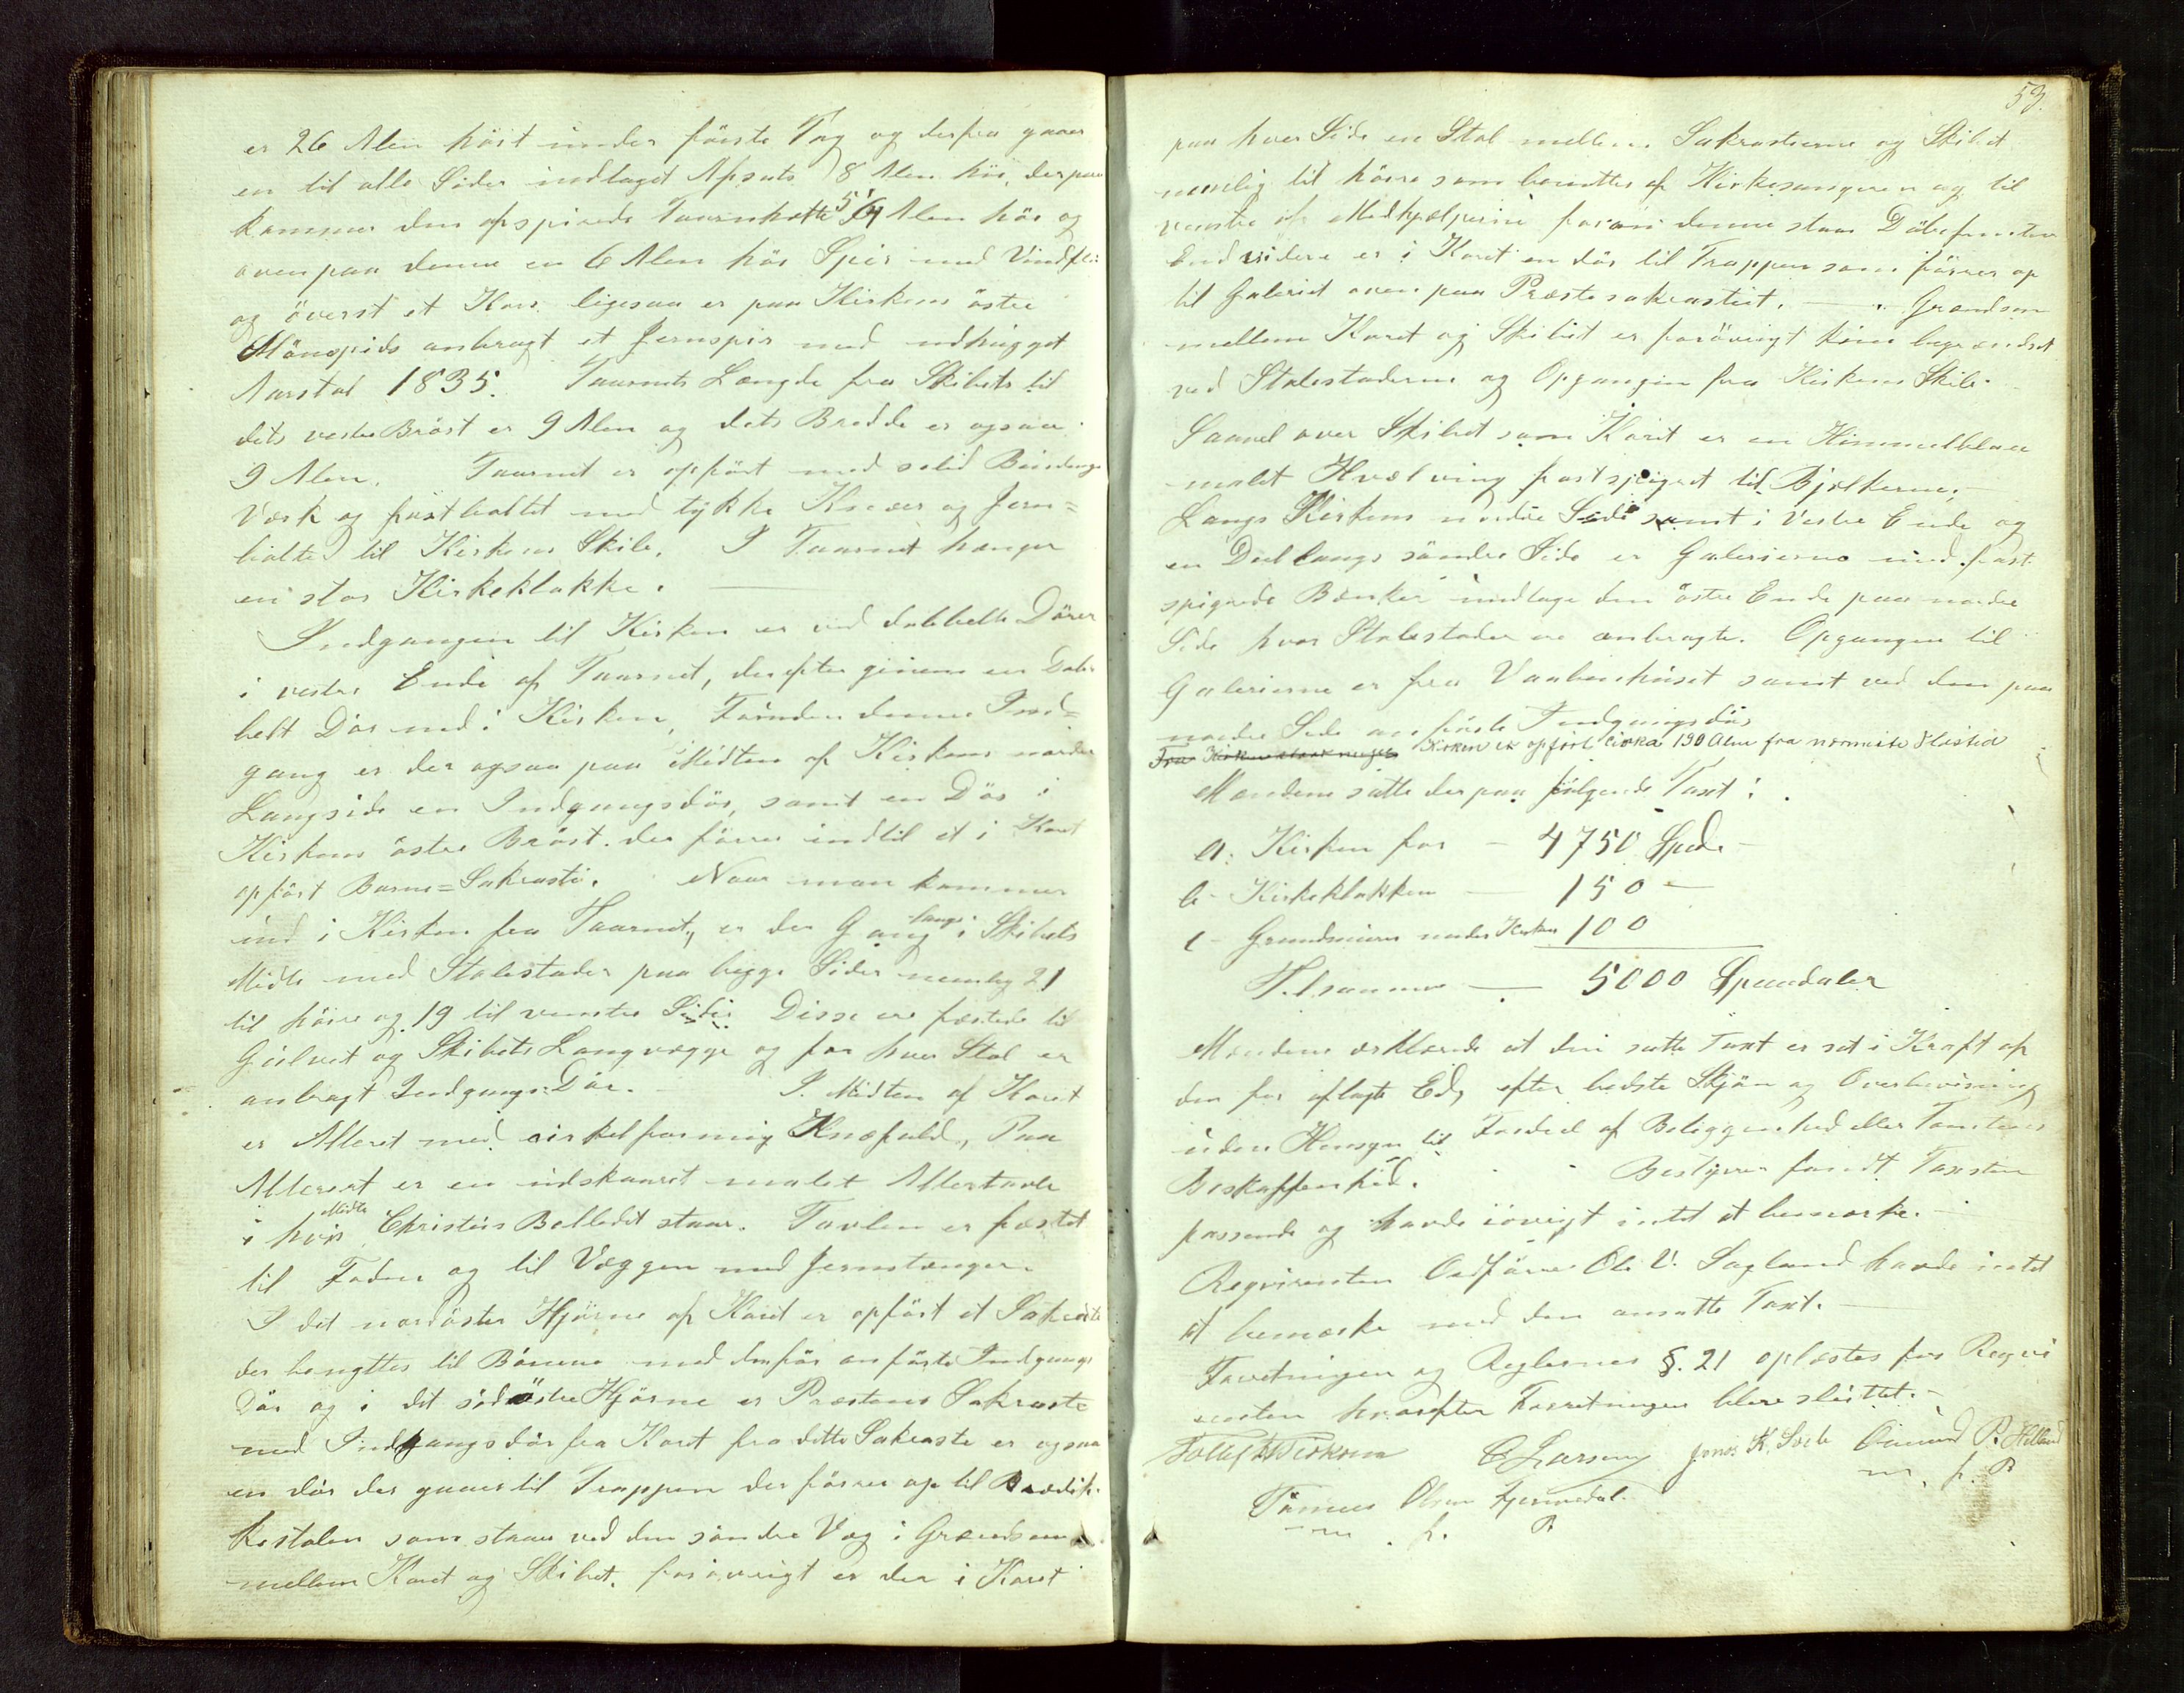 er 26 Alen höit under förste Tag og derfra gaaer
en til alle Sider indtaget Afsats 8 Alen höi, derpaa
kommer den afspidsede Taarnhatte 5¼ Alen höi og
ovenpaa denne en 6 Alen höi Spir med Vindflöi
og överst et Kors. ligesaa er paa Kirkens östre
Mönspids anbragt et Jernspir med udhugget
Aarstal 1835. Taarnets Længde fra Skibets til
dets vestre Bröst er 9 Alen og dets Bredde er ogsaa
9 Alen. Taarnet er opfört med solid Bindings
Værk og fastboltet med tykke Knæer og Jern=
bolte til Kirkens Skib. I Taarnet hænger
en stor Kirkeklokke.
Indgangen til Kirken er ved dobbelte Dörer
i vestre Ende af Taarnet, derefter gjennem en Dob
belt Dör ind i Kirken, Foruden denne Ind=
gang er der ogsaa paa Midten af Kirkens nordre
Langside en Indgangsdör, samt en Dör i
Kirkens östre Bröst. der förer indtil et i Koret
opfört Barne=Sakrasti. Naar man kommer
ind i Kirken fra Taarnet, er der Gang langs i Skibets
Midte med Stolestader paa begge Sider nemlig 21
til höire og 19 til venstre Side. Disse ere fæstede til
Gulvet og Skibets Langvægge og for hver Stol er
anbragt Indgangs-Dör. I Midten af Koret
er Alteret med cirkelformig Knæfald, Paa
Alteret er en udskaaret malet Altertavle
i hvis Midte Christus Belledet staar. Tavlen er fæstet
til Foden og til Væggen med Jernstænger.
I det nordöstre Hjörne af Koret er opfört et Sakrasti
der benyttes til Börnene med den för anförte Indgangs
Dör og i det sydöstre Hjörne er Præstens Sakrasti
med Indgangsdör fra Koret fra dette Sakrasti er ogsaa
en dör der gaaer til Trappen der förer op til Prædik.
kestolen som staar ved den söndre Væg i Grændsen
mellem Koret og Skibet. forövrigt er der i Koret
53.
paa hver Side en Stol mellem Sakrastierne og Skibet
nemlig til höire som benyttes af Kirkesangeren og til
venstre af Medhjælperne foran denne staar Döbefonten
Endvidere er i Koret en dör til Trappen som förer op
til Galeriet oven paa Præstesakrastiet. Grændsen
mellem Koret og Skibet er forövrigt kun begrændset
ved Stolestaderne og Opgangen fra Kirkens Skib.
Saavel over Skibet som Koret er en Himmelblaa
malet Hvælving fastspigret til Bjelkerne.
Langs Kirkens nordre Side samt i Vestre Ende og
en Deel langs söndre Side er Galerierne med fast
spigrede Bænker undtage den östre Ende paa nordre
Side hvor Stolestader ere anbragte. Opgangen til
Galerierne er fra Vaabenhuset samt ved den paa
nordre Side anförte Indgangsdör
Kirken er opfört cirka 190 Alen fra nærmeste Ildsted
Mændene satte derpaa fölgende Taxt:
a. Kirken for – 4750 Spd. –
b – Kirkeklokken – 150 –
c – Grundmuren under Kirken 100
Tilsammen – 5000 Speciedaler
Mændene erklærede at den satte Taxt er sat i Kraft af
den for aflagte Ed, efter bedste Skjön og Overbeviisning
uden Hensyn til Fordeel af Beliggenhed eller Tomtens
Beskaffenhed. Bestyrer fandt Taxten
passende og havde iövrigt intet at bemærke. –
Reqvirenten Ordförer Ole V. Sagland havde intet
at bemærke med den ansatte Taxt. –
Forretningen og Reglernes §. 21 oplæstes for Reqvi
renten hvorefter Forretningen blev sluttet. –
C Larsen Jonas K. Svele Omund P. Helland
m. f. P
Tönnes Olsen Gjermedal.
m. f. P